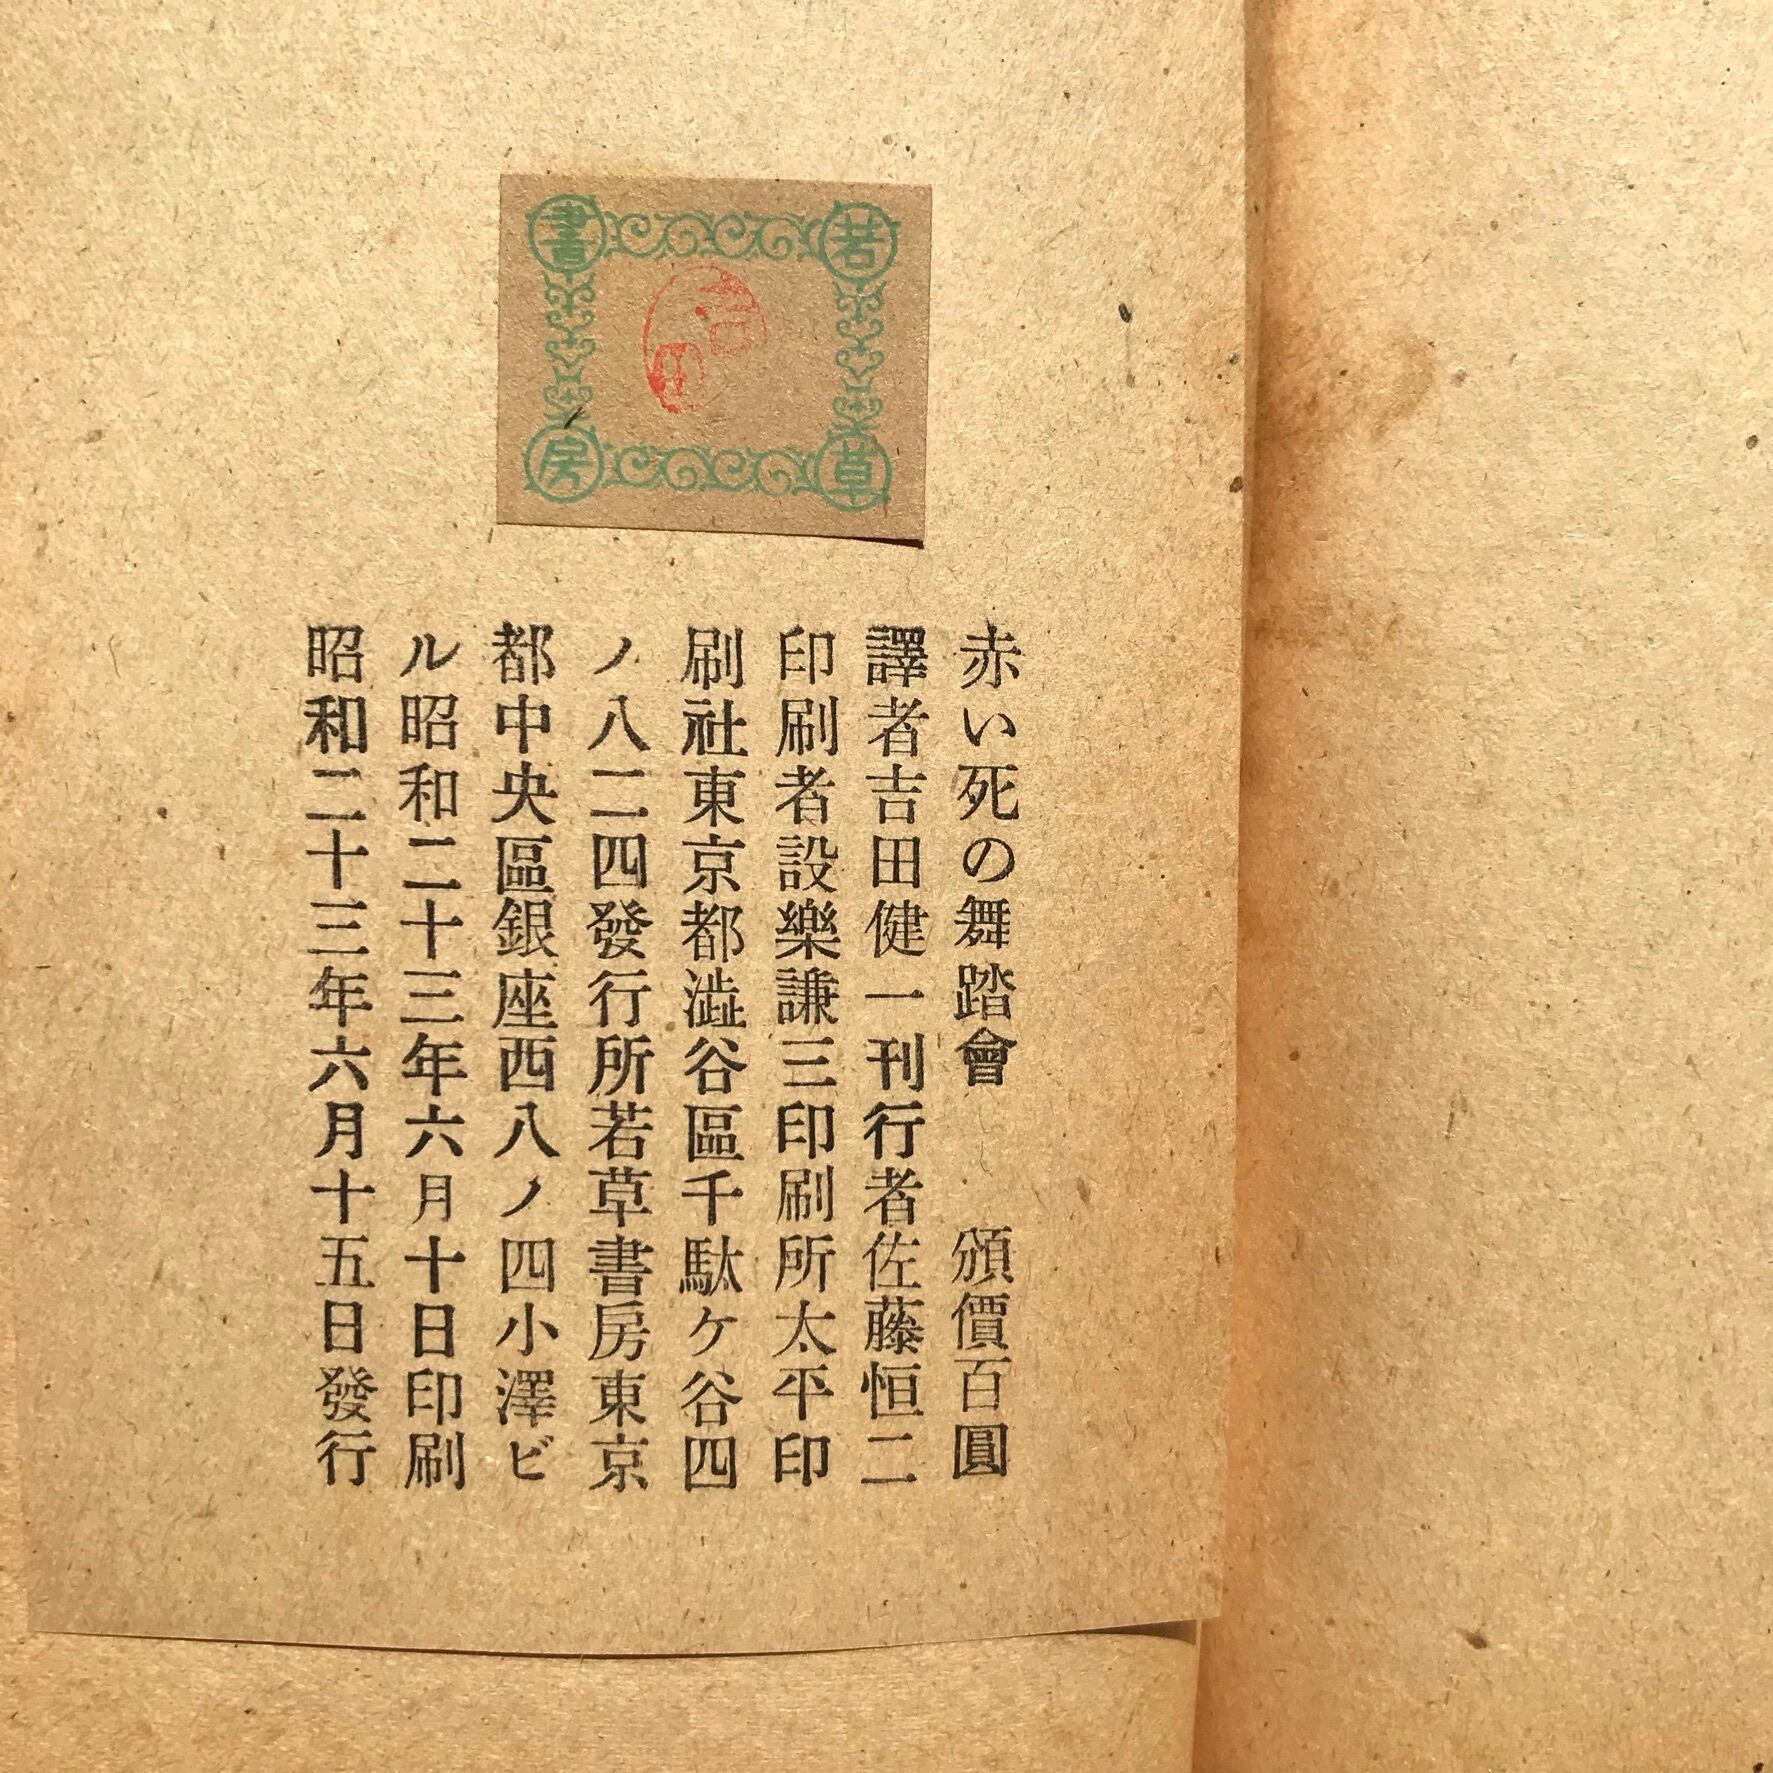 若草
書房
吉田
赤い死の舞踏會　頒價百圓
譯者吉田健一刊行者佐藤恒二
印刷者設樂謙三印刷所太平印
刷社東京都澁谷區千駄ケ谷四
ノ八二四發行所若草書房東京
都中央區銀座西八ノ四小澤ビ
ル昭和二十三年六月十日印刷
昭和二十三年六月十五日發行